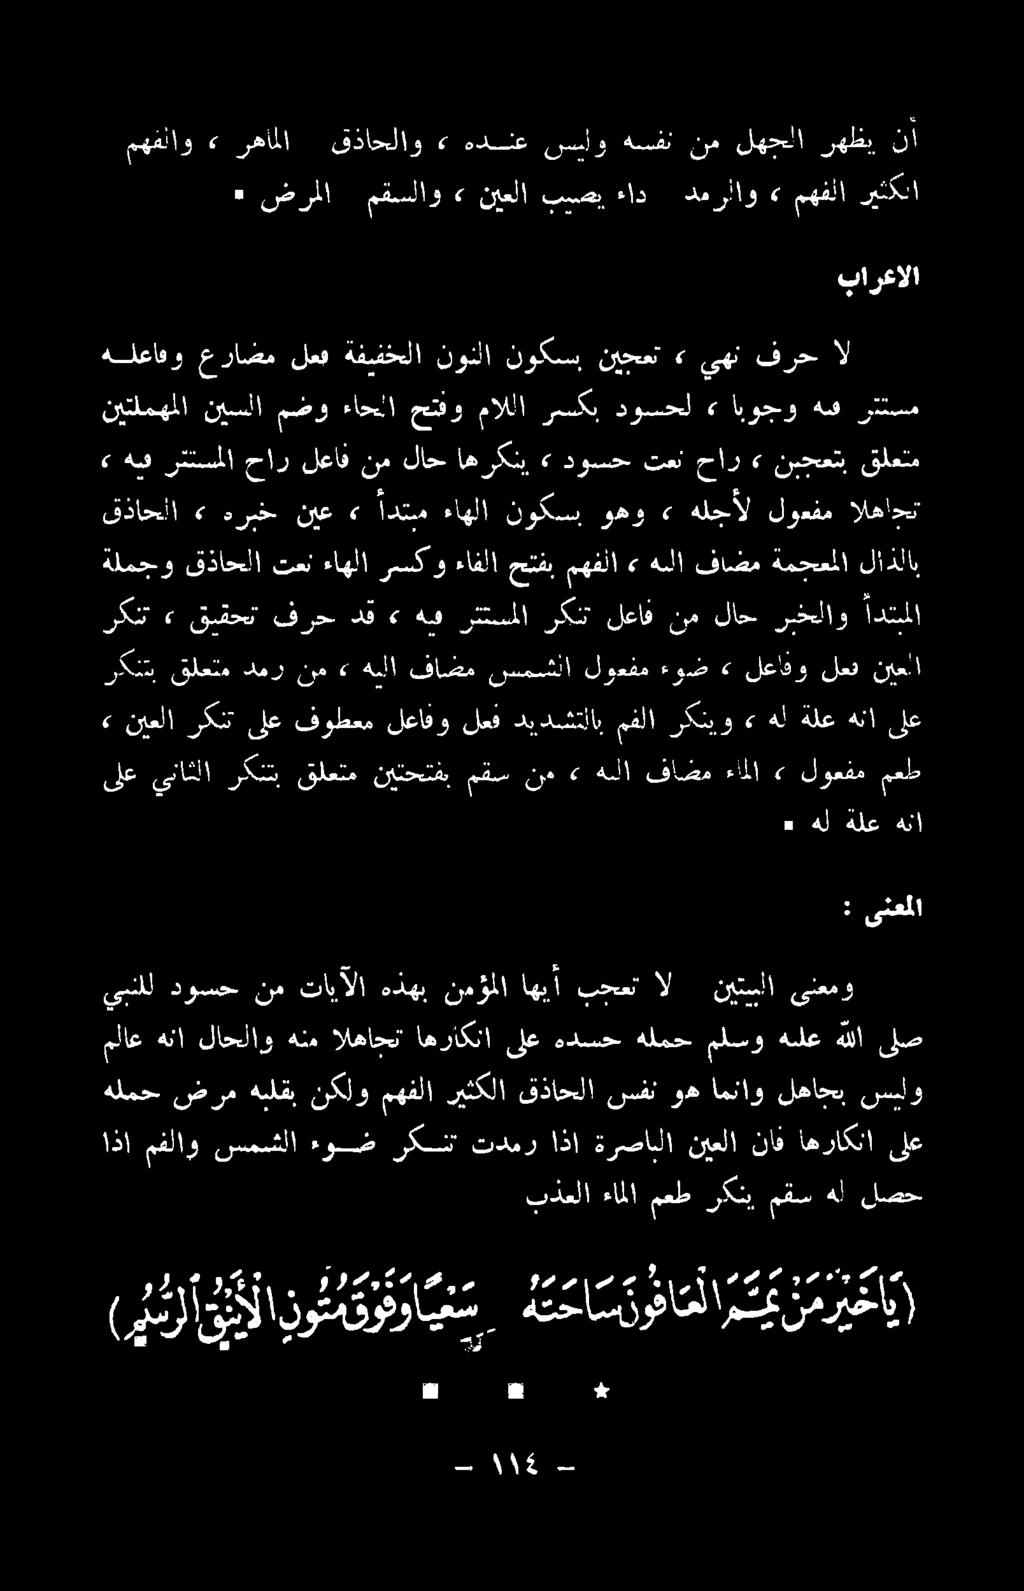 أن يظهر الجهل من نفسه وليس عنــده ، والحاذق الماهر ، والفهم
الكثير الفهم ، والرمد داء يصيب العين ، والسقم المرض ▪
الاعراب
لا حرف نهي ، تعجبن بسكون النون الخفيفة فعل مضارع وفاعلــه
مستتر فيه وجوبا ، لحسود بكسر اللام وفتح الحاء وضم السين المهملتين
متعلق بتعجبن ، راح نعت حسود ، ينكرها حال من فاعل راح المستتر فيه ،
تجاهلا مفعول لأجله ، وهو بسكون الهاء مبتدأ ، عين خبره ، الحاذق
بالذال المعجمة مضاف اليه ، الفهم بفتح الفاء وكسر الهاء نعت الحاذق وجملة
المبتدأ والخبر حال من فاعل تنكر المستتر فيه ، قد حرف تحقيق ، تنكر
العين فعل وفاعل ، ضوء مفعول الشمس مضاف اليه ، من رمد متعلق بتنكر
على انه علة له ، وينكر الفم بالتشديد فعل وفاعل معطوف على تنكر العين ،
طعم مفعول ، الماء مضاف اليه ، من سقم بفتحتين متعلق بتنكر الثاني على
انه علة له ▪
المعنى :
ومعنى البيتين لا تعجب أيها المؤمن بهذه الآيات من حسود للنبي
صلى الله عليه وسلم حمله حسده على انكارها تجاهلا منه والحال انه عالم
وليس بجاهل وانما هو نفس الحاذق الكثير الفهم ولكن بقلبه مرض حمله
على انكارها فان العين الباصرة اذا رمدت تنــكر ضــوء الشمس والفم اذا
حصل له سقم ينكر طعم الماء العذب
(يَا خَيْرَ مَنْ يَمَّمَ الْعَافُونَ سَاحَتَهُ سَعْيًا وَفَوْقَ مُتُونِ الْأَيْنُقِ الرُّسُمِ)
★ ▪ ▪
– ١١٤ –